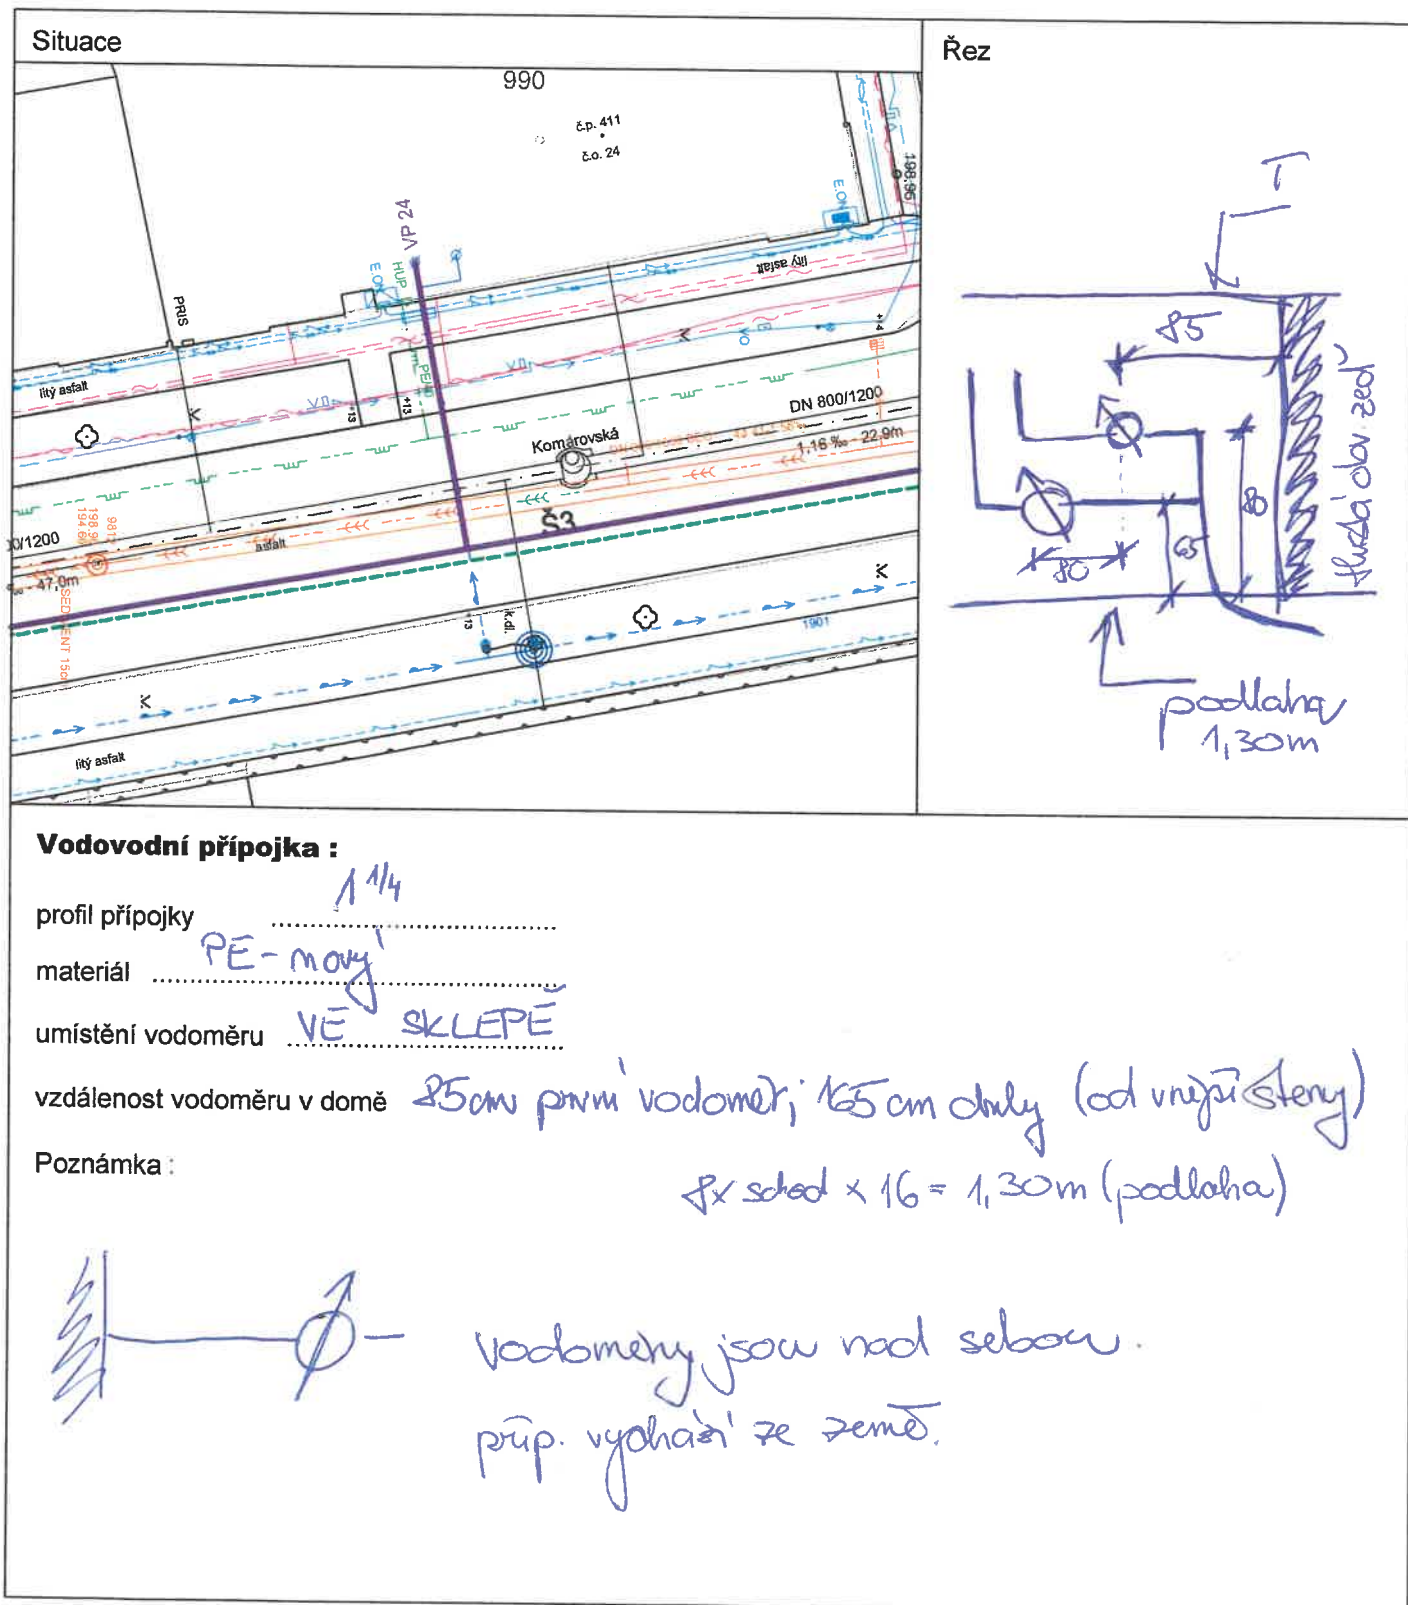 Situace
Řez
990
č.p. 411
č.o. 24
198.96
E.ON
VP 24
HUP
E.ON
litý asfalt
PRIS
VO
+14
litý asfalt
+13
+13
PE
DN 800/1200
Komárovská
1,16 ‰ - 22,9m
Š3
00/1200
asfalt
47,0m
SEDIMENT 15cm
+13
k.dl.
1901
litý asfalt
T
85
80
65
80
obv. zeď
podlaha
1,30m
Vodovodní přípojka :
profil přípojky 1 1/4
materiál PE - nový
umístění vodoměru VE SKLEPĚ
vzdálenost vodoměru v domě 85cm první vodoměr; 165 cm druhý (od vnější stěny)
Poznámka :
8x schod x 16 = 1,30m (podlaha)
vodoměry jsou nad sebou.
příp. vychází ze země.